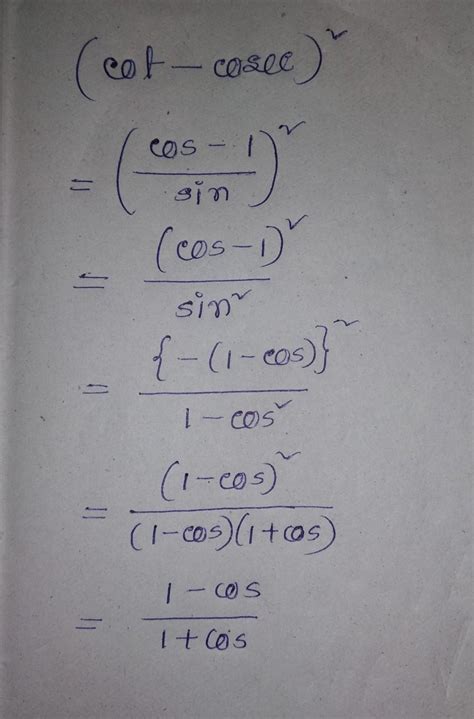 (cot - cosec)²
= (cos - 1 / sin)²
= (cos - 1)² / sin²
= {-(1 - cos)}² / 1 - cos²
= (1 - cos)² / (1 - cos)(1 + cos)
= 1 - cos / 1 + cos